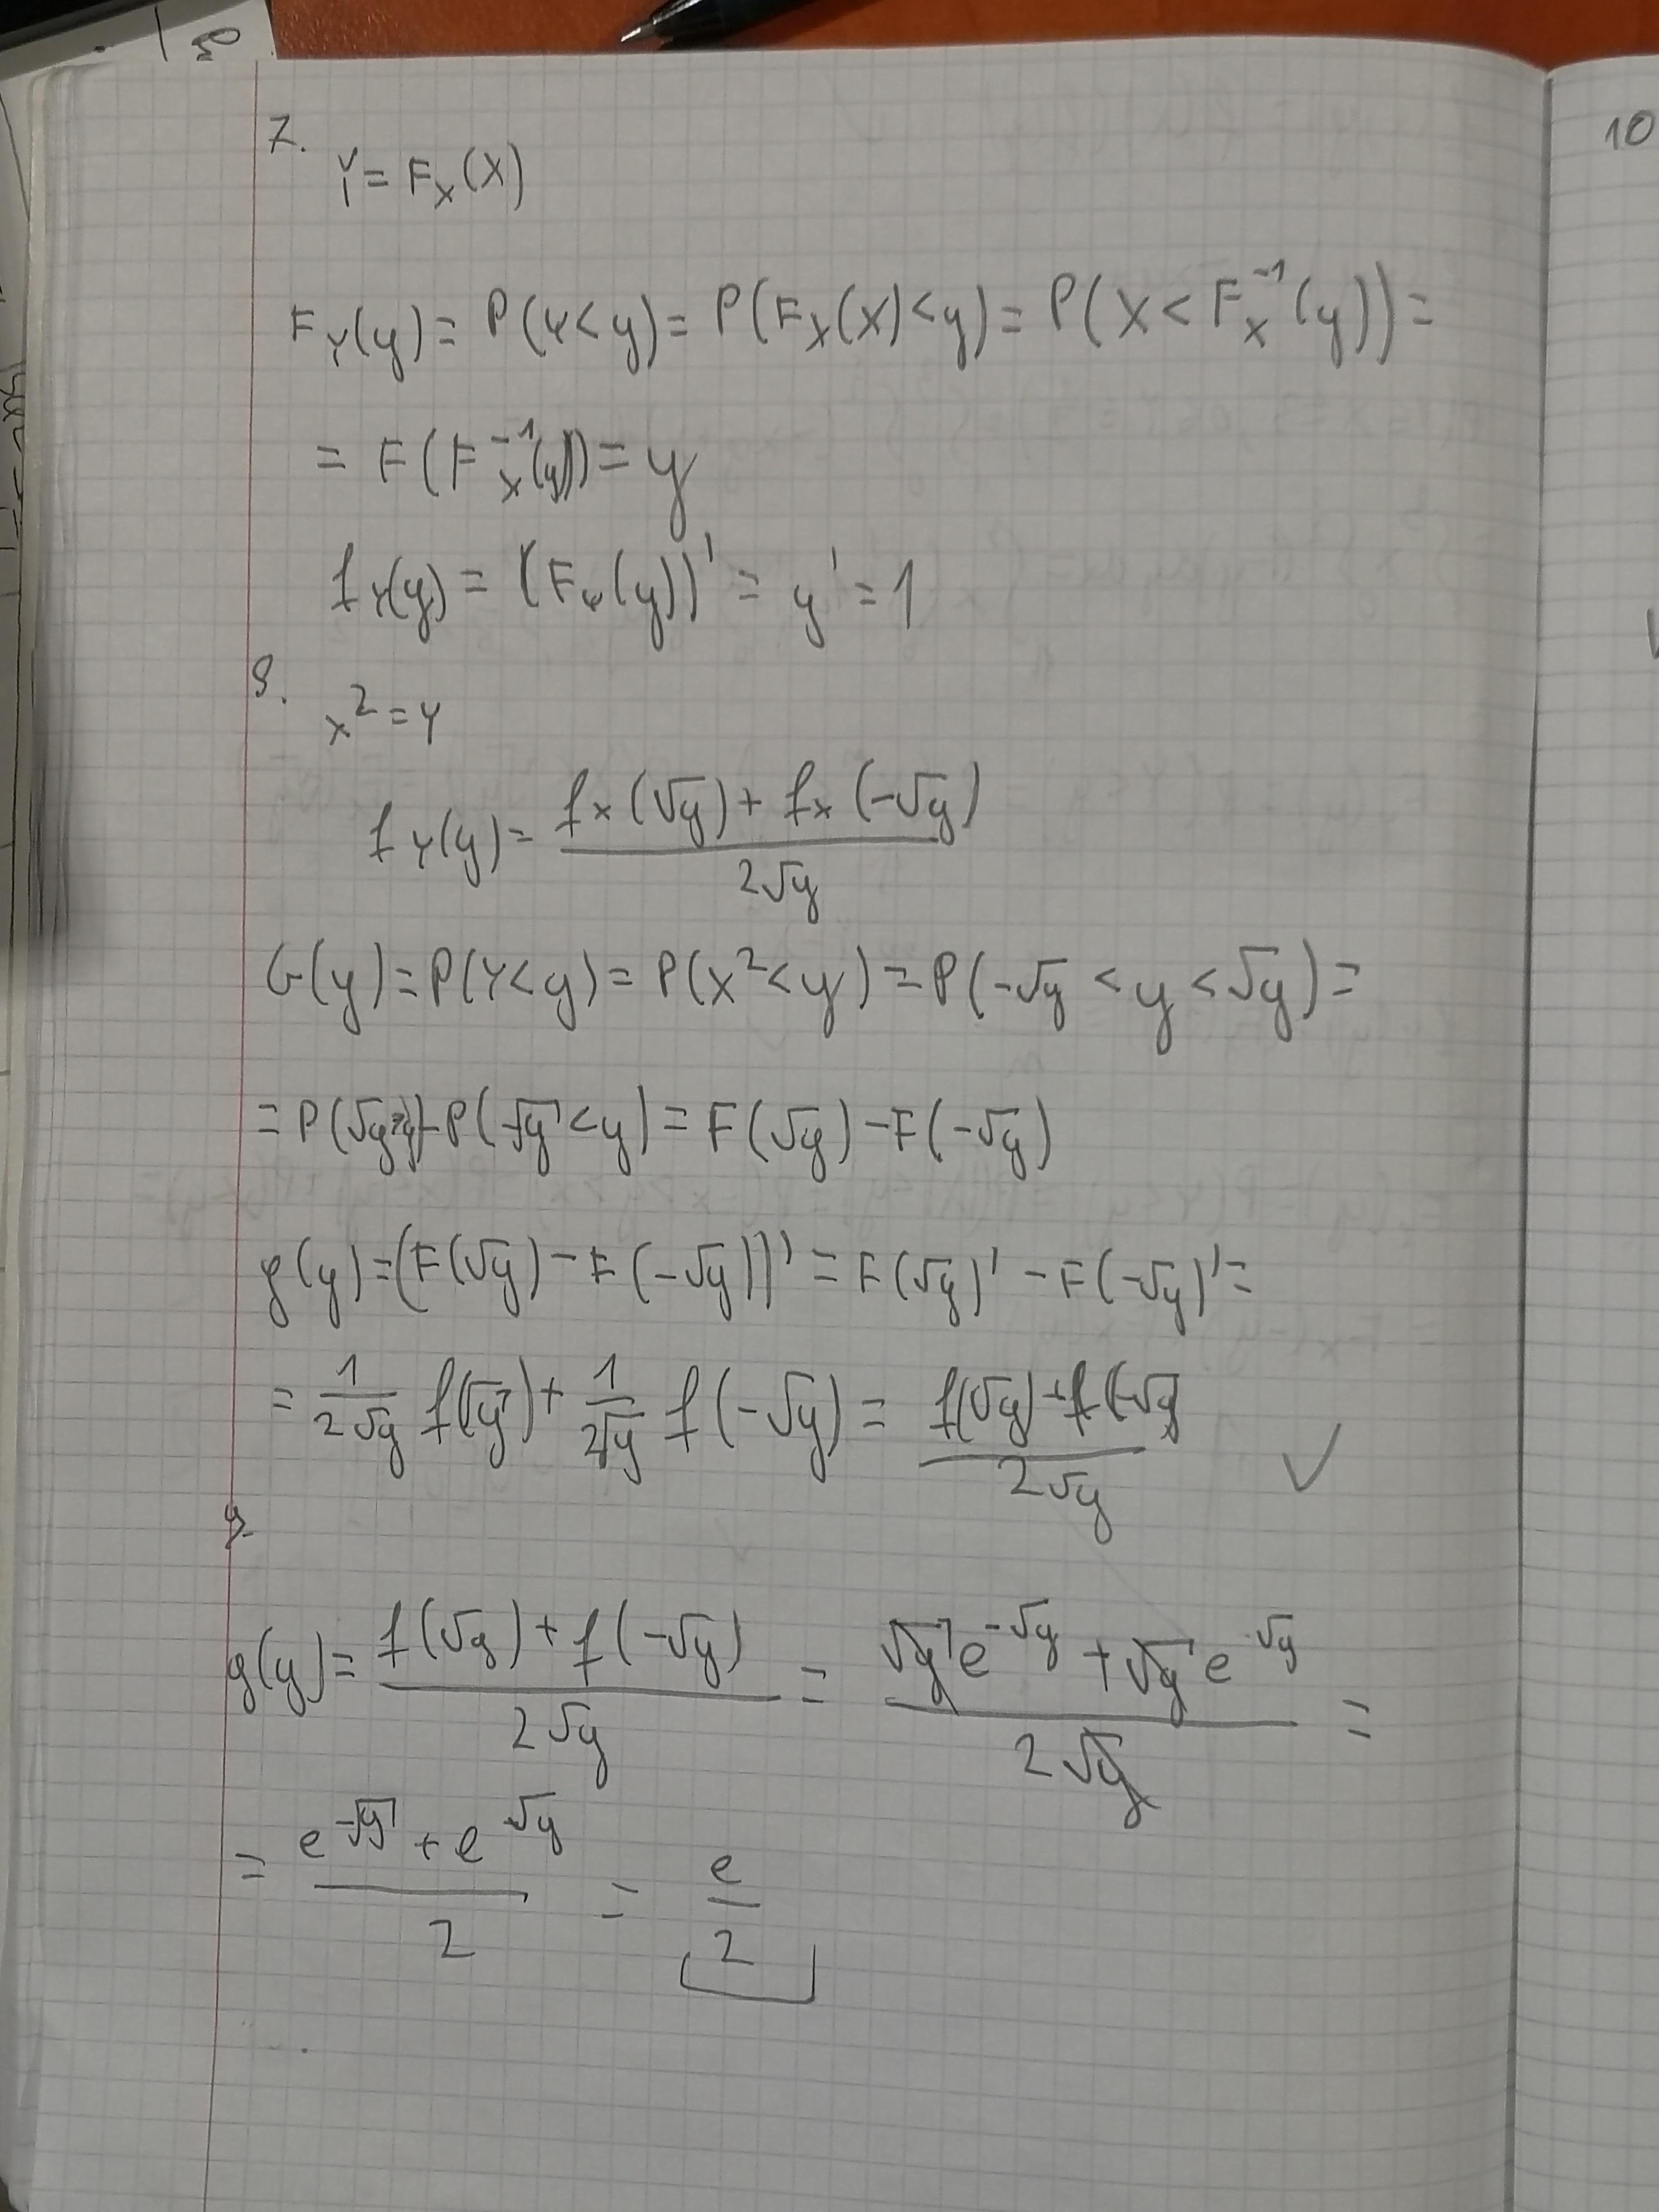 7.
Y = F_X(X)
F_Y(y) = P(Y < y) = P(F_X(X) < y) = P(X < F_X^{-1}(y)) =
= F(F_X^{-1}(y)) = y
f_Y(y) = (F_Y(y))' = y' = 1
8.
x² = Y
f_Y(y) = \frac{f_X(√y) + f_X(-√y)}{2√y}
G(y) = P(Y < y) = P(X² < y) = P(-√y < y < √y) =
= P(√y > y) - P(-√y < y) = F(√y) - F(-√y)
g(y) = (F(√y) - F(-√y))' = F(√y)' - F(-√y)' =
= \frac{1}{2√y} f(√y) + \frac{1}{2√y} f(-√y) = \frac{f(√y) + f(-√y)}{2√y} ✓
9.
g(y) = \frac{f(√y) + f(-√y)}{2√y} = \frac{√y e^{-√y} + √y e^{-√y}}{2√y} =
= \frac{e^{-√y} + e^{-√y}}{2} = \frac{e}{2}
10